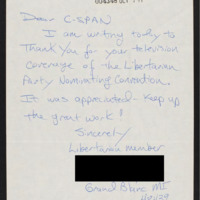 Dear C-SPAN
I am writing today to
Thank you for your television
Coverage of the Libertarian
Party Nominating Convention.
It was appreciated - Keep up
the great work!
Sincerely
Libertarian member
Grand Blanc MI